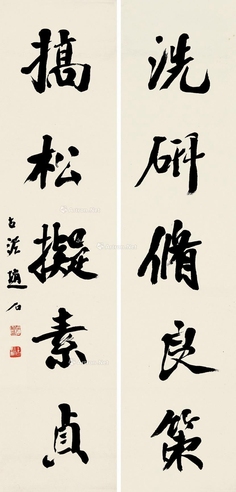 洗研脩良策
搞松擬素貞
古泥趙石